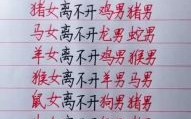 猪女离不开鸡男猪男
马女离不开龙男蛇男
羊女离不开鸡男猴男
猴女离不开羊男马男
鼠女离不开狗男猪男